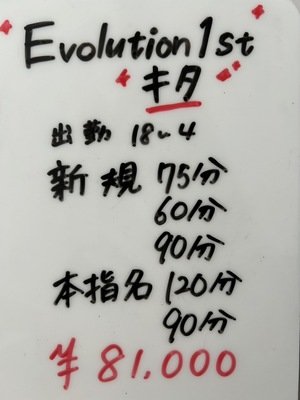 Evolution 1st
キタ
出勤 18〜4
新規 75分
60分
90分
本指名 120分
90分
¥81,000